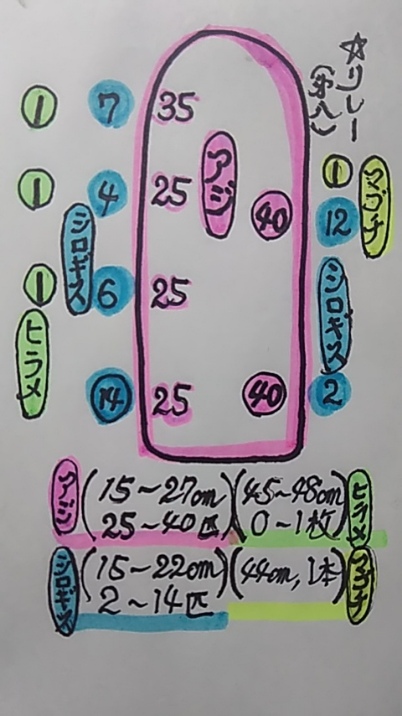 ☆リレー
1 7 35
アジ
1 4 25
40
1 マゴチ
12
シロギス
1 6 25
シロギス
ヒラメ
14 25 40 2
アジ (15~27cm 25~40匹)
(45~48cm 0~1枚) ヒラメ
シロギス (15~22cm) 2~14匹
(44cm, 1本) マゴチ